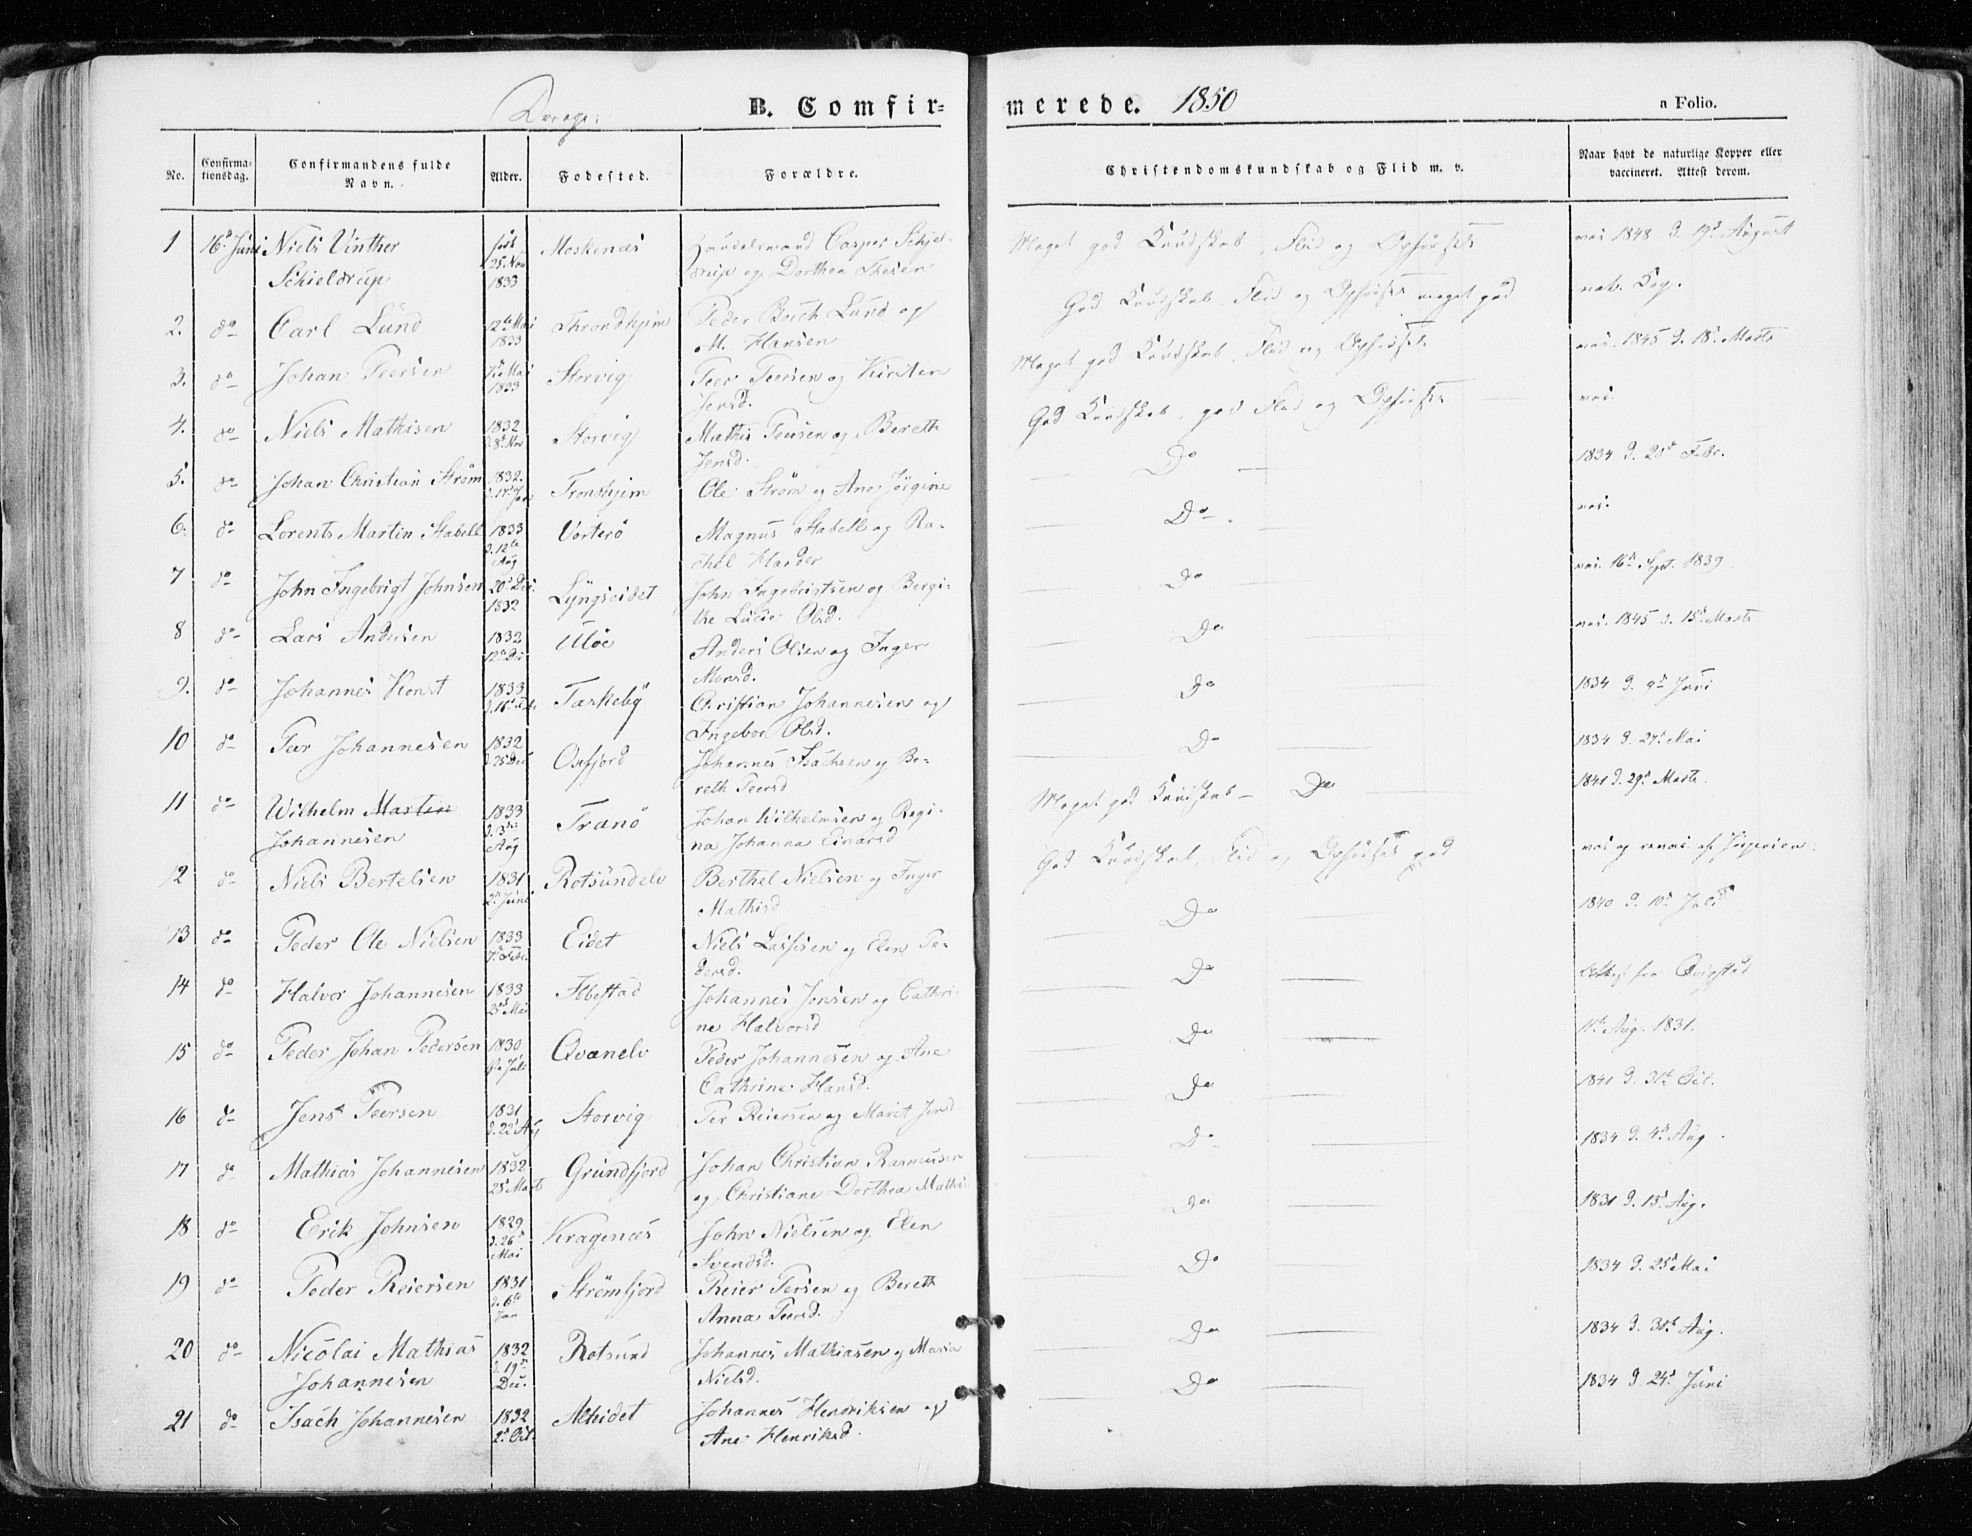 Drenge:
B. Comfirmerede. 1850
a Folio.
No. Confirmationsdag. Confirmandens fulde Navn. Alder. Fodested. Forældre. Christendomskundskab og Flid m. v. Naar havt de naturlige Kopper eller vaccineret. Attest derom.
1 16d Juni Niels Vinther født Moskenæs Handelsmand Casper Schjel- Meget god Kundskab, Flid og Opførsel vac 1848 d. 19d August
Schieldrup 25 Nov 1833 drup og Dorthea
2. do Carl Lund 12te Mai 1833 Throndhjem Peder Buch Lund og God Kundskab, Flid og Opførsel meget god nat. Kop.
M. Hansen
3. do Johan Peersen Mai 1833 Storvig Peer Peersen og Kirsten Meget god Kundskab, Flid og Opførsel vac. 1845 d. 18d Marts
Jensd.
4. do Niels Mathisen 1832 d. 8d Nov Storvig Mathis Peersen og Bereth God Kundskab, god Flid og Opførsel vac.
Jensd.
5. do Johan Christian Strøm 1832. Jan Tronhjem Ole Strøm og Ane Jørgine Do 1834 d. 20d Febr.
6. do Lorents Martin Stabell 1833 d. 12te Aug Vorterø Magnus Stabell og Ra- Do vac.
chel Harder
7 do John Ingebrigt Johnsen 20d Dec. 1832 Lyngseidet John Ingebrigtsen og Bergi- Do vac. 16d Sept. 1839
the Lucie Olsd.
8 do Lars Andersen 1832 12te Dec Uløe Anders Olsen og Inger Do vac. 1845 d. 15d Marts
Monsd.
9. do Johannes Horst 1833 d. 16d Taskeby Christian Johannesen og Do 1834 d. 9d Juni
Ingebor Olsd.
10 do Peer Johannesen 1832 d. 25 Dec Oxfjord Johannes Isachsen og Be- Do 1834 d. 27d Mai
reth Peersd
11 do Wilhelm Martin 1833 d. 13de Aug Tranø Johan Wilhelmsen og Regi- Meget god Kundskab - Do 1841 d. 29d Marts.
Johannesen na Johanna Einarsd
12 do Niels Bertelsen 1831 2d Juni Rotsundelv Berthel Nielsen og Inger God Kundskab, Flid og Opførsel god vac og revac af Jørgensen.
Mathisd
13 do Peder Ole Nielsen 1833 7d Febr. Eidet Niels Lassesen og Elen Pe- Do 1840 d. 10d Juli
dersd.
14 do Halvor Johannesen 1833 23d Mai Ibestad Johannes Jonsen og Cathri- Do Attest fra Qvigstad
ne Halvorsd
15 do Peder Johan Pedersen 1830 Juli Qvanelv Peder Johannesen og Ane Do 11te Aug. 1831.
Cathrine Hansd.
16 do Jens Peersen 1831 d. 22d Aug Storvig Per Reiersen og Marit Jensd Do 1841 d. 31te Oct.
17 do Mathias Johannesen 1832 25d Marts Grundfjord Johan Christian Rasmusen Do 1834 d. 4d Aug.
og Christiane Dorthea Mathis
18 do Erik Johnsen 1829 d. 26d Mai Kragenæs John Nielsen og Elen Do 1831 d. 13d Aug.
Svendsd.
19 do Peder Reiersen 1831 d. 6te Jan Strømfjord Reier Persen og Bereth Do 1834 d. 25d Mai
Anna Peersd.
20 do Nicolai Mathias 1832 d. 19de Dec. Rotsund Johannes Mathiasen og Maria Do 1834 d. 30te Aug.
Johannesen Nielsd.
21 do Isach Johannesen 1832 2d Oct. Alteidet Johannes Henriksen og Do 1834 d 24d Juni
Ane Henriksd.